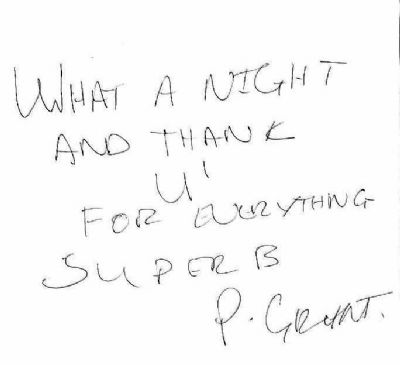 WHAT A NIGHT
AND THANK
U'
FOR EVERYTHING
SUPERB
P. GRANT.